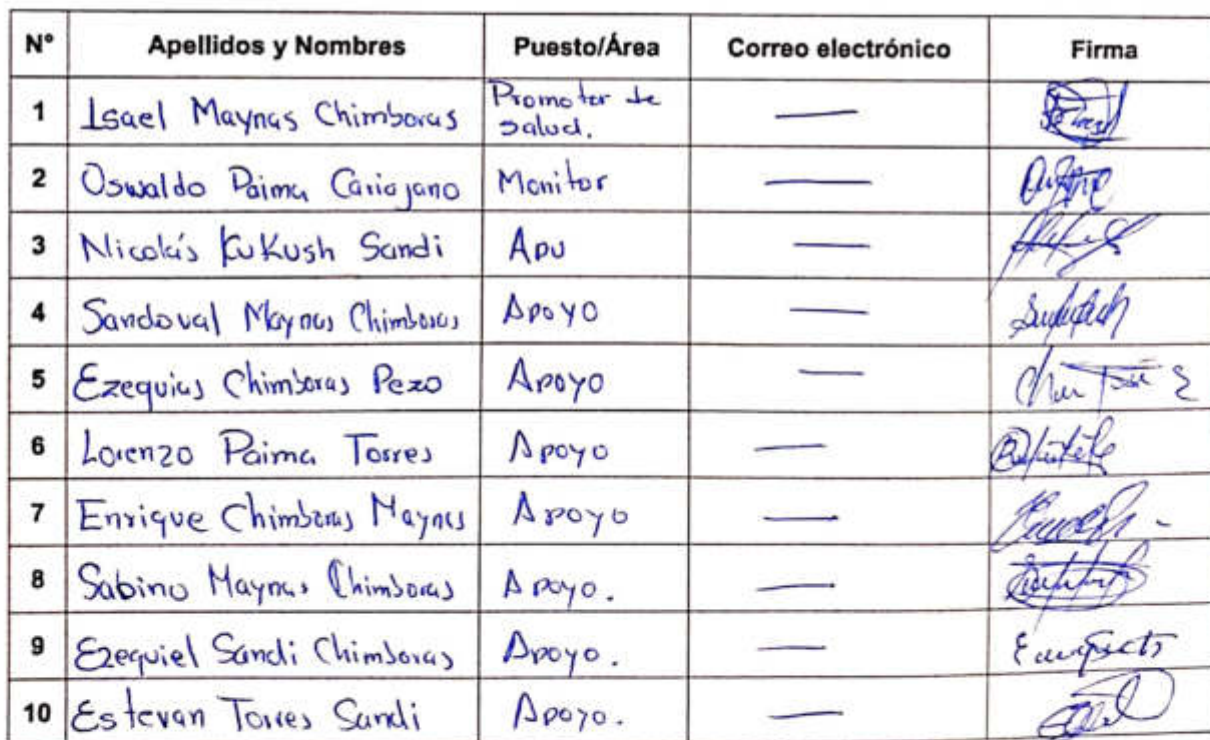 N° Apellidos y Nombres Puesto/Área Correo electrónico Firma
1 Isael Maynas Chimboras Promotor de salud. —
2 Oswaldo Paima Cariajano Monitor —
3 Nicolás Kukush Sandi Apu —
4 Sandoval Maynas Chimboras Apoyo —
5 Ezequias Chimboras Pezo Apoyo —
6 Lorenzo Paima Torres Apoyo —
7 Enrique Chimboras Maynas Apoyo —
8 Sabino Maynas Chimboras Apoyo. —
9 Ezequiel Sandi Chimboras Apoyo. —
10 Estevan Torres Sandi Apoyo. —